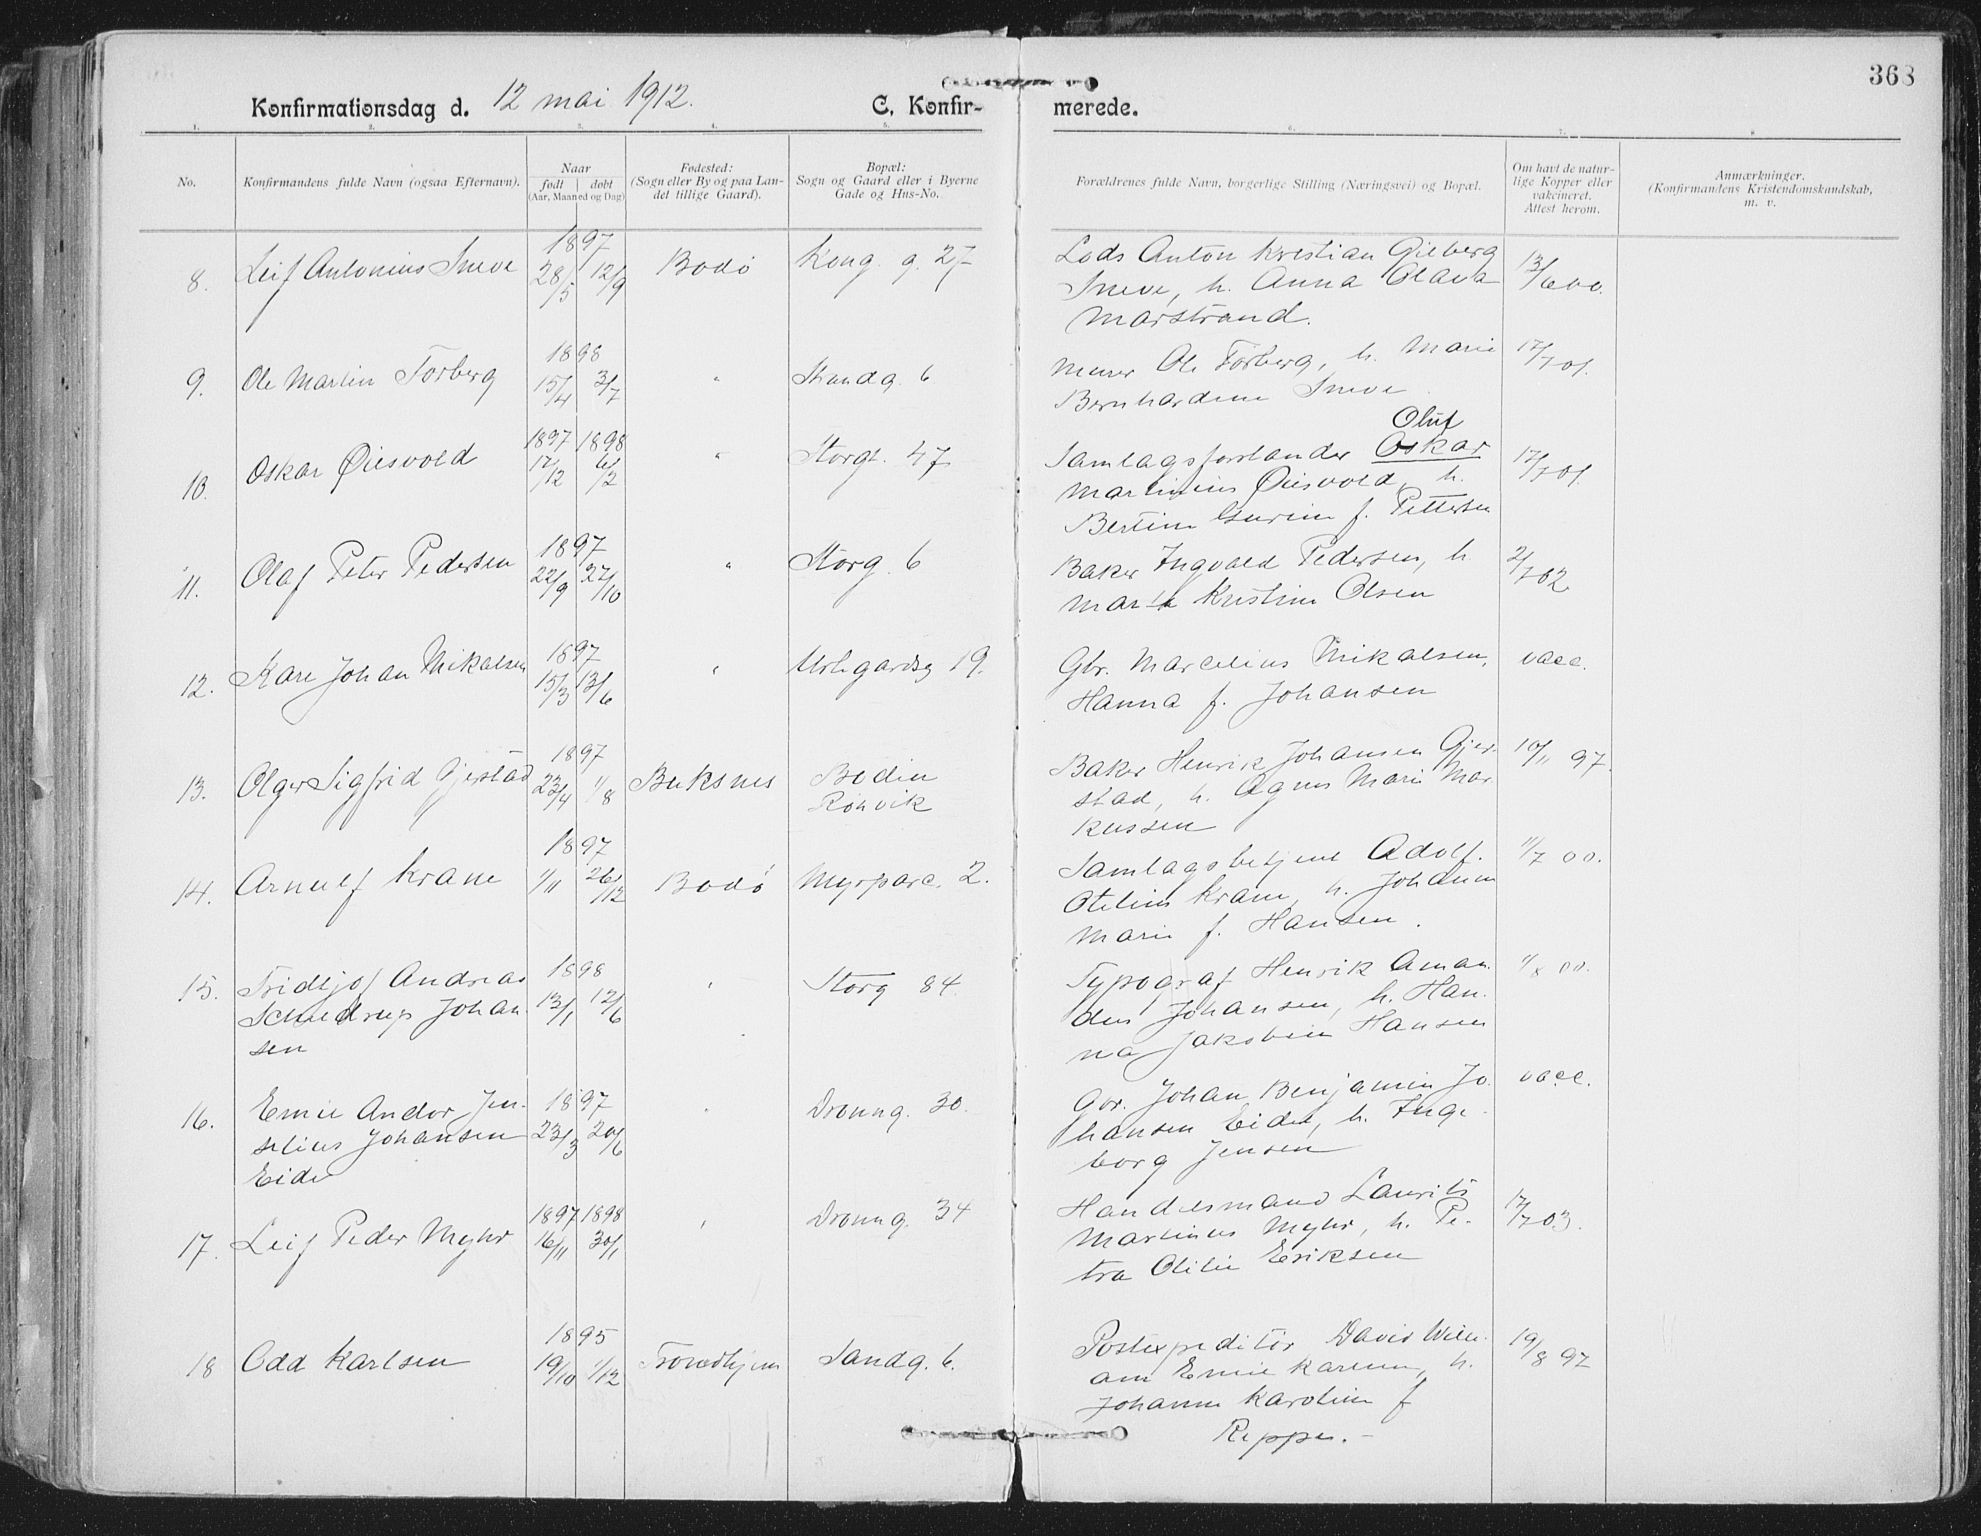 368
Konfirmationsdag d. 12 mai 1912. C. Konfir- merede.
1. 2. 3. 4. 5. 6. 7. 8.
No.
Konfirmandens fulde Navn (ogsaa Efternavn).
Naar
født døbt
(Aar, Maaned og Dag)
Fødested:
(Sogn eller By og paa Lan-
det tillige Gaard).
Bopæl:
Sogn og Gaard eller i Byerne
Gade og Hus-No.
Forældrenes fulde Navn, borgerlige Stilling (Næringsvei) og Bopæl.
Om havt de natur-
lige Kopper eller
vakcineret.
Attest herom.
Anmærkninger.
(Konfirmandens Kristendomskundskab,
m. v.
8. Leif Antonius Sneve
1897
28/5 12/9
Bodø
Kong. g. 27
Lods Anton Kristian Gjeberg
Sneve, h. Anna Olava
Marstrand.
13/6 00.
9. Ole Martin Torberg
1898
15/4 3/7
"
Strandg. 6
Murer Ole Torberg, h. Marie
Bernhardine Sneve.
17/7 01.
10. Oskar Øiesvold
1897 1898
12/12 6/2
"
Storgt. 47
Oluf
Samlagsforstander Oskar
Martinius Øiesvold, h.
Bertine f. Pettersen
17/7 01.
11. Olaf Peter Pedersen
1897
22/9 27/10
"
Storg. 6
Baker Ingvald Pedersen, h
Maria Kristine Olsen
2/7 02.
12. Kare Johan Mikalsen
1897
15/3 13/6
"
19.
Gbr. Marcelius Mikalsen,
Hanna f. Johansen
vacc.
13. Olger Sigfrid Gjerstad
1897
23/4 1/8
Buksnes
Bodin
Rønvik
Baker Henrik Johansen Gjer-
stad, h. Agnes Marie Mar
kussen
10/11 97.
14. Arnulf Krane
1897
1/11 26/12
Bodø
Myrparc. 2.
Samlagsbetjent Adolf.
Otelius Krane, h. Johanne
Marie f. Hansen.
11/7 00.
15. Fridtjof Andreas
Schjedrup Johan
sen
1898
13/1 12/6
"
Storg 84.
Typograf Henrik Aman.
dus Johansen, h. Han.
na Jakobine Hansen
1/8 00.
16. Emil Andor Jen-
selius Johansen
Eide
1897
23/3 20/6
"
Dronng. 30.
Gbr. Johan Benjamin Jo.
hansen Eide, h. Inge
borg Jensen
vacc.
17. Leif Peder Myhr
1897 1898
16/11 30/1
"
Dronng. 34
Handelsmand Laurits
Martinus Myhr, h. Pe.
tra Otilie Eriksen
17/7 03.
18 Odd Karlsen
1895
19/10 1/12
Trondhjem
Sandg. 6.
Postexpeditør David Willi.
am Emil Karlsen, h.
Johanne Karoline f
Reppe.-
19/8 97